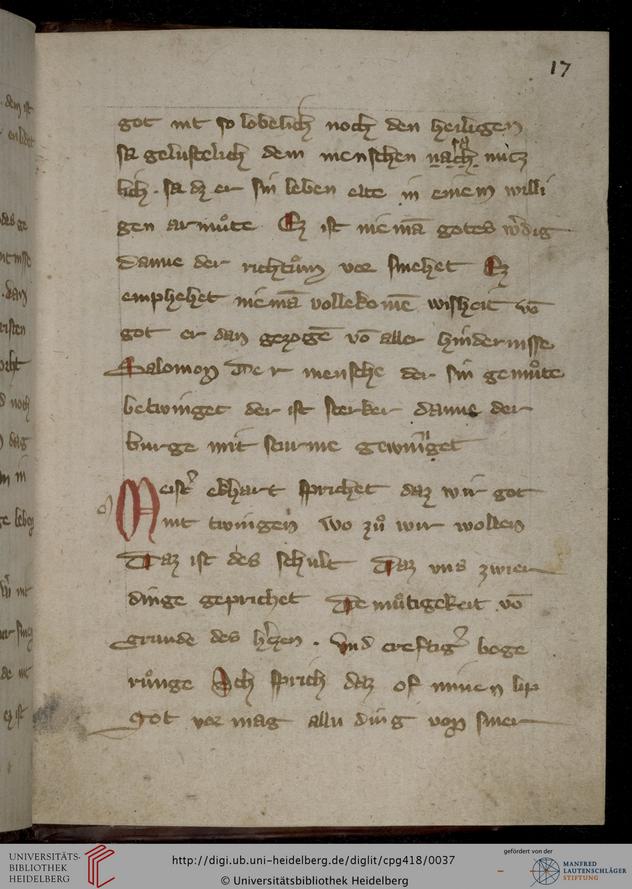 17
got nit so lobelich noch den heiligen
sa gelustelich dem menschen nach nutz
lich · sa dz er sin leben elte in einem willi
gen armůte Ez ist niemā gotes w̓dig
danne der richtům vor smehet Ez
emphehet niemā vollekomē wisheit vō
got er dan gezogē vō aller hindernisse
Salomon Der mensche der sin gemůte
betwinget der ist sterker danne der
burge mit sturme gewinnet
Meist̓ ekhart sprichet daz wir got
mit twingen wo zů wir wollen
Daz ist des schult Daz uns zwier
dinge geprichet Demůtigekeit vō
grunde des h̓zen · Vnd creftig̓ bege
růnge Ich sprich daz of minen lip
Got vor mag allu ding von siner
UNIVERSITÄTS-
BIBLIOTHEK
HEIDELBERG
http://digi.ub.uni-heidelberg.de/diglit/cpg418/0037
© Universitätsbibliothek Heidelberg
gefördert von der
MANFRED
LAUTENSCHLÄGER
STIFTUNG